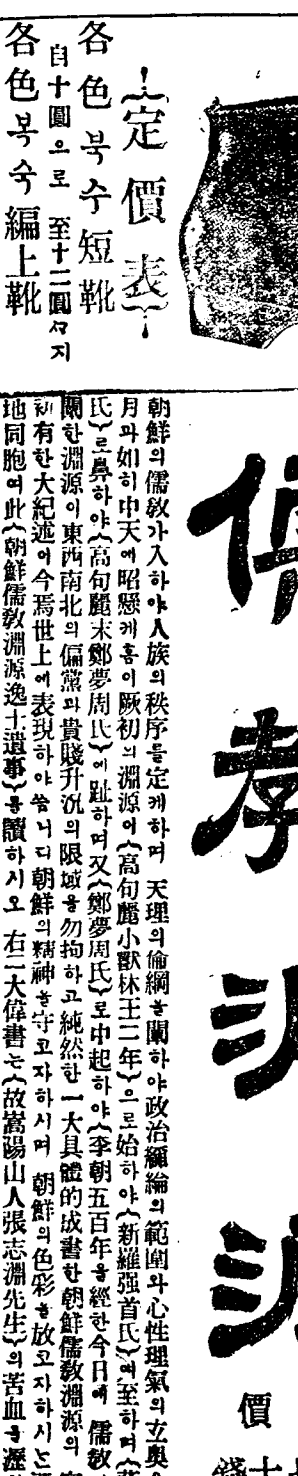 定價表
各色북수短靴
自十圓으로 至十二圓ᄭᅡ지
各色복숙編上靴
儒
孝
淵
源
價
朝鮮의儒敎가入하야人族의秩序를定케하며 天理의倫綱을闡하야政治經綸의範圍와心性理氣의立奧
月과如히中天에昭懸케홈이厥初의淵源이(高句麗小獸林王二年)으로始하야(新羅强首氏)에至하며(薛
氏)로鼻하야(高句麗末鄭夢周氏)에趾하며又(鄭夢周氏)로中起하야(李朝五百年을經한今日에 儒敎
關한淵源이東西南北의偏黨과貴賤升沉의限域을勿拘하고純然한一大具體的成書한朝鮮儒敎淵源의
初有한大紀述이今焉世上에表現하야쓰니디朝鮮의精神을守고자하시며 朝鮮의色彩를放고자하시는
地同胞여此(朝鮮儒敎淵源逸士遺事)를讀하시오 右二大偉書는(故嵩陽山人張志淵先生)의苦血을瀝